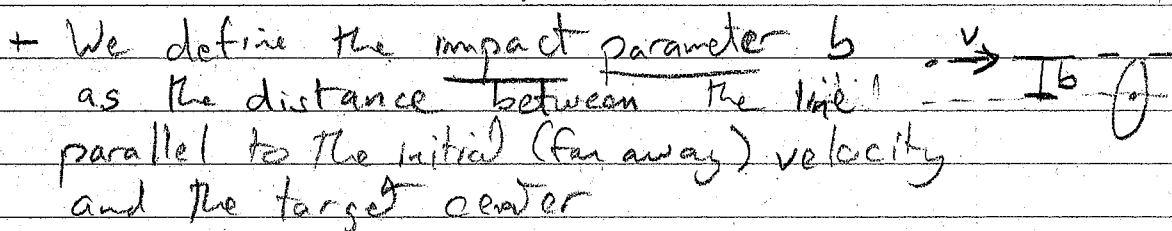 + We define the impact parameter b
v
b
as the distance between the line
parallel to the initial (far away) velocity
and the target center